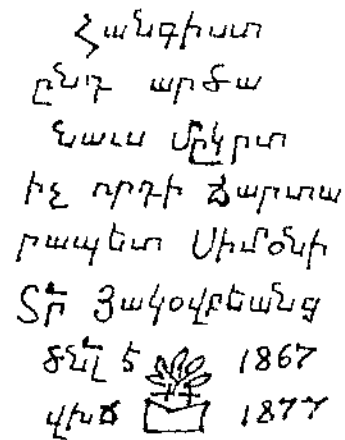 Հանգիստ
ընդ արձա
նաւս Մըկրտ
իչ որդի ճարտա
րապետ Սիմօնի
Տր Յակօվբեանց
ծնլ 5 1867
վխճ 1877